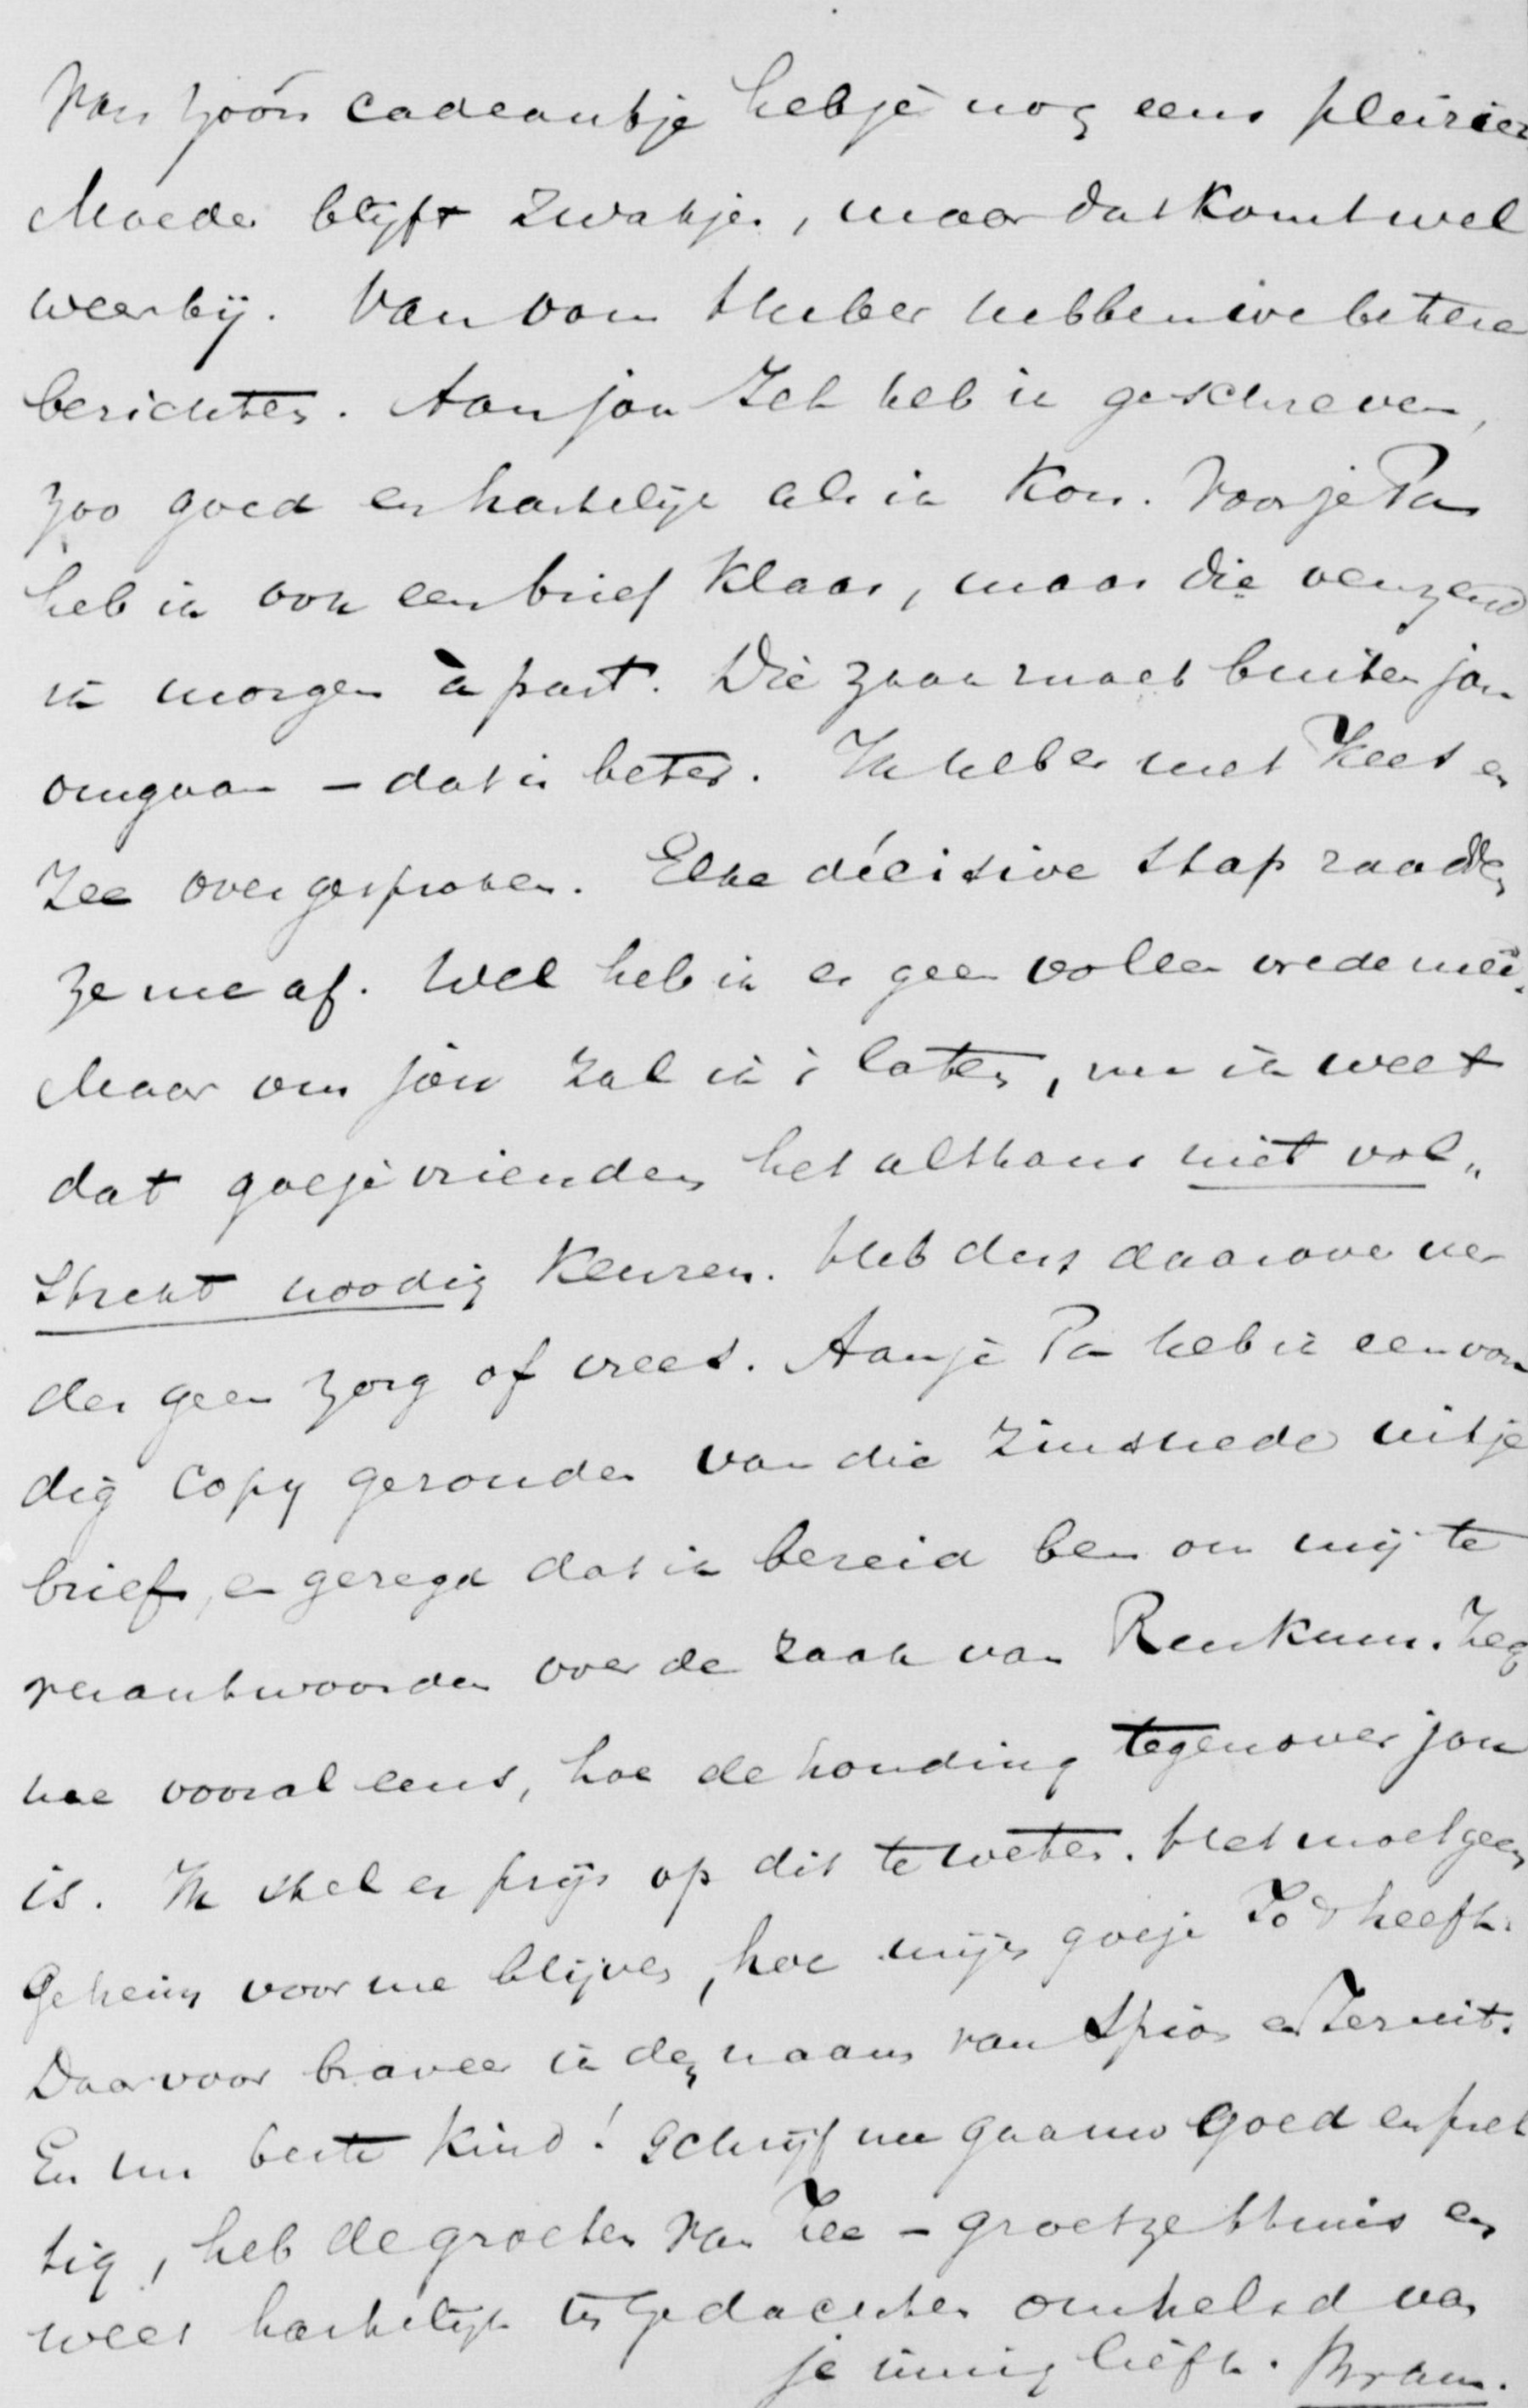 Van zóón cadeautje heb je nog eens pleizier
Moeder blijft zwakjes, maar dat komt wel
weer bij. Van oom Huber hebben we betere
berichten. Aan jou heb ik geschreven,
zoo goed en hartelijk als ik kon. Voor je Pa
heb ik ook een brief klaar, maar die verzend
ik morgen à part. Die zaak moet buiten jou
omgaan – dat is beter. Ik heb er met Kees en
Zee over gesproken. Elke décisive stap raadden
ze me af. Wel heb ik er geen vollen vrede mee.
Maar om jou zal ik 't laten, nu ik weet
dat goeje vrienden het althans niet vol„
strekt noodig keuren. Heb dus daarover ver
der geen zorg of vrees. Aan je Pa heb ik eenvou
dig copy gezonden van die zinsnede uit je
brief, en gezegd dat ik bereid ben om mij te
verantwoorden over de zaak van Renkum. Zeg
me vooral eens, hoe de houding tegenover jou
is. Ik stel er prijs op dit te weten. Het moet geen
geheim voor me blijven, hoe mijn goeje Jo 't heeft.
Daarvoor braveer ik den naam van Spion en Jezuit.
En nu beste kind! Schrijf me gaauw goed en pret
tig, heb de groeten van Zee – groet ze thuis en
wees hartelijk in gedachten omhelsd van
je innig liefh. Bram.